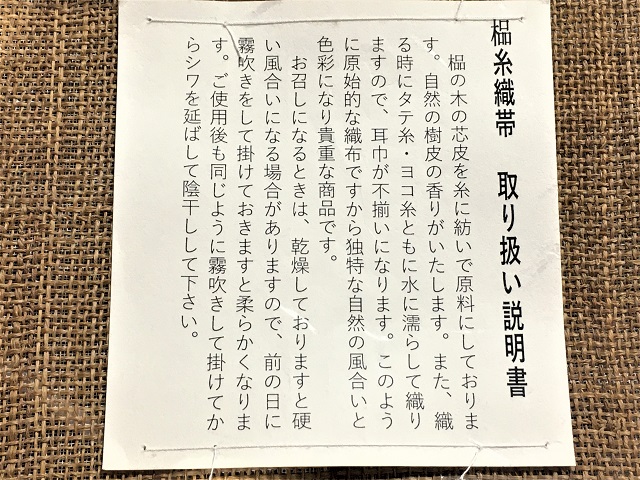 榀糸織帯　取り扱い説明書
榀の木の芯皮を糸に紡いで原料にしておりま
す。自然の樹皮の香りがいたします。また、織
る時にタテ糸・ヨコ糸ともに水に濡らして織り
ますので、耳巾が不揃いになります。このよう
に原始的な織布ですから独特な自然の風合いと
色彩になり貴重な商品です。
お召しになるときは、乾燥しておりますと硬
い風合いになる場合がありますので、前の日に
霧吹きをして掛けておきますと柔らかくなりま
す。ご使用後も同じように霧吹きして掛けてか
らシワを延ばして陰干しして下さい。